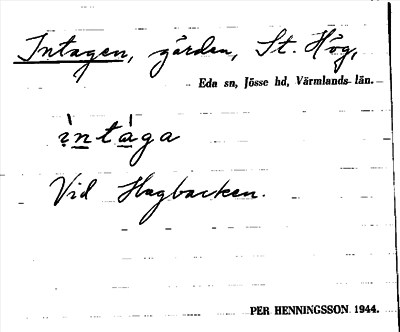 Intagen, gården, St. Hög,
Eda sn, Jösse hd, Värmlands län.
ìntàga
Vid Hagbacken.
PER HENNINGSSON 1944.